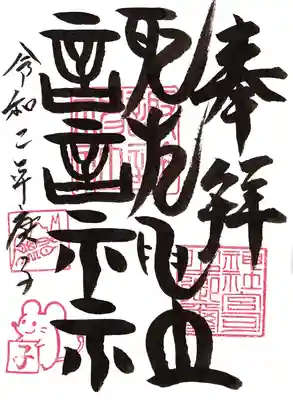 奉拝
諏訪神社
令和二年庚子
子